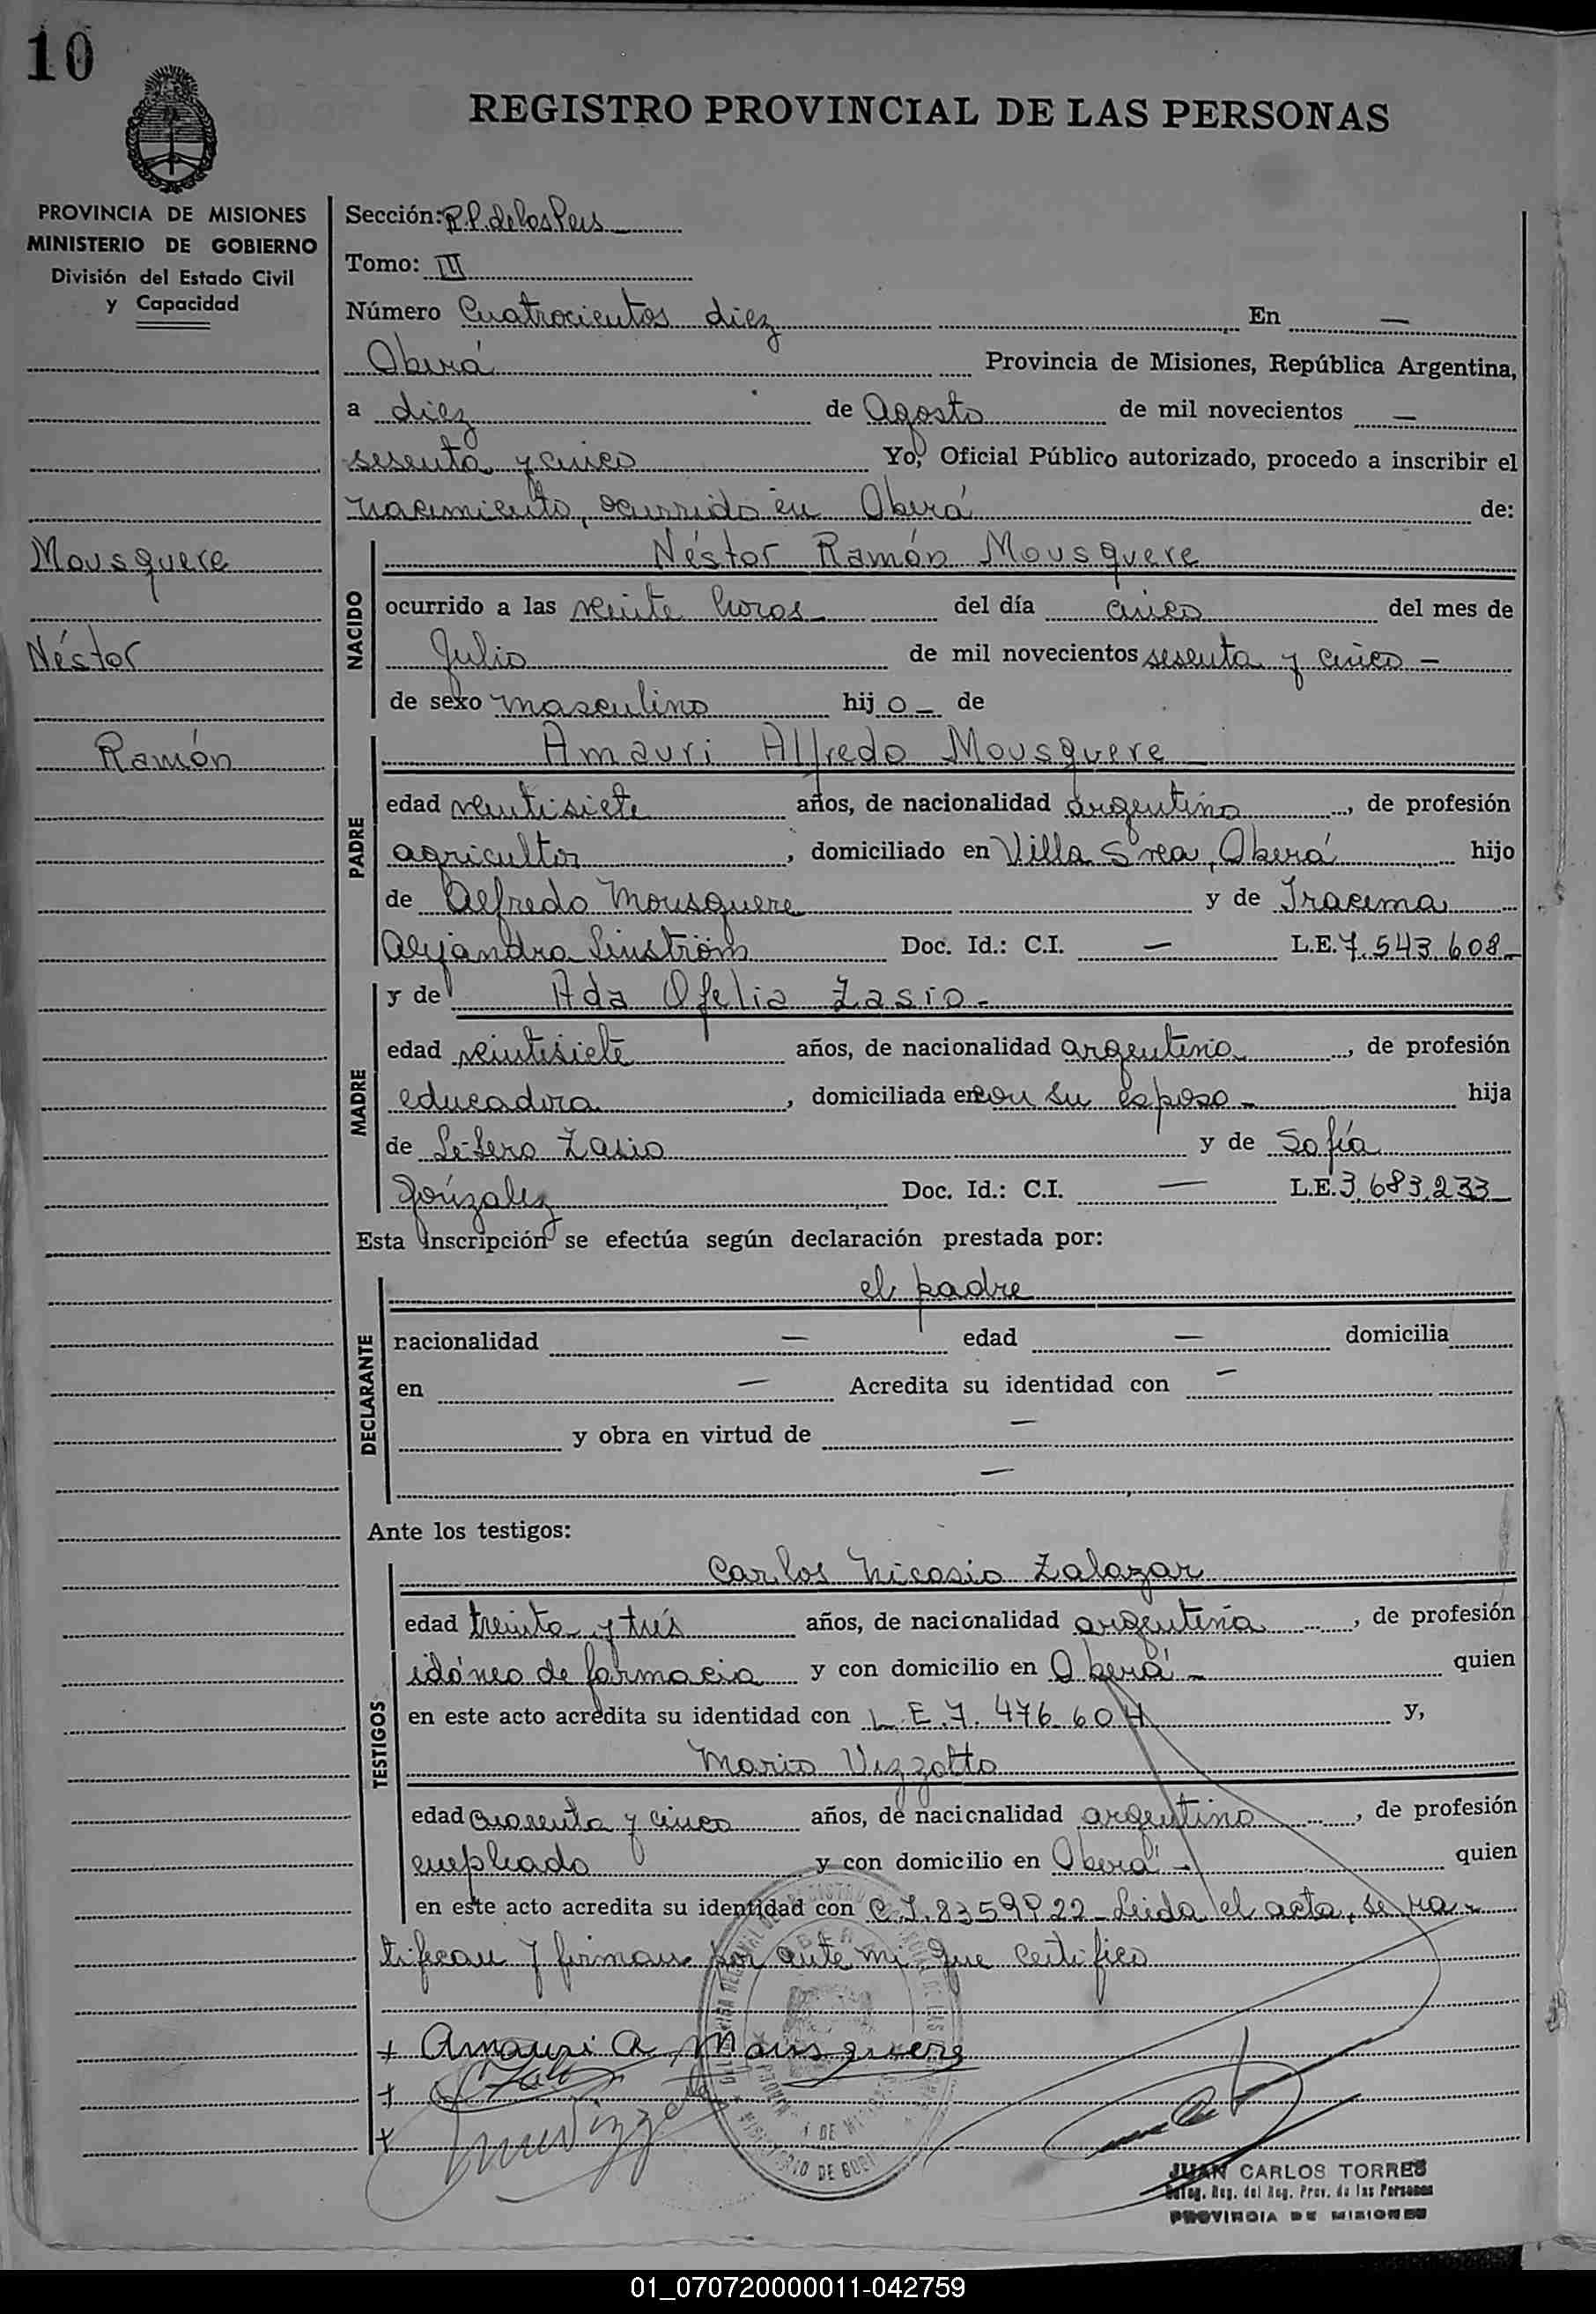 10
REGISTRO PROVINCIAL DE LAS PERSONAS
PROVINCIA DE MISIONES
MINISTERIO DE GOBIERNO
División del Estado Civil
y Capacidad
Mousquere
Néstor
Ramón
Sección: R.P. de las Pers
Tomo: III
Número Cuatrocientos diez En —
Oberá Provincia de Misiones, República Argentina,
a diez de Agosto de mil novecientos —
sesenta y cinco Yo, Oficial Público autorizado, procedo a inscribir el
nacimiento, ocurrido en Oberá de:
NACIDO
Néstor Ramón Mousquere
ocurrido a las veinte horas del día cinco del mes de
Julio de mil novecientos sesenta y cinco —
de sexo masculino hij o — de
PADRE
Amauri Alfredo Mousquere
edad veintisiete años, de nacionalidad argentino, de profesión
agricultor, domiciliado en Villa Svea, Oberá hijo
de Alfredo Mousquere y de Iracema
Alejandra Linström Doc. Id.: C.I. — L.E. 7.543.608—
MADRE
y de Ada Ofelia Zasio —
edad veintisiete años, de nacionalidad argentina, de profesión
educadora, domiciliada en con su esposo — hija
de Zasio y de Sofía
González Doc. Id.: C.I. — L.E. 3.683.233—
Esta inscripción se efectúa según declaración prestada por:
DECLARANTE
el padre
nacionalidad — edad — domicilia
en — Acredita su identidad con —
y obra en virtud de —
—
Ante los testigos:
TESTIGOS
Carlos Nicasio Zalazar
edad treinta y tres años, de nacionalidad argentina, de profesión
idóneo de farmacia y con domicilio en Oberá — quien
en este acto acredita su identidad con L.E. 7.476.604 y,
Mario Vizzotto
edad cuarenta y cinco años, de nacionalidad argentino, de profesión
empleado y con domicilio en Oberá — quien
en este acto acredita su identidad con C.I. 8359922— Leida el acta, se ra-
tifican y firman por ante mi que certifico
+ Amauri A Mousquere
+
+
JUAN CARLOS TORRES
Deleg. Reg. del Reg. Prov. de las Personas
PROVINCIA DE MISIONES
01_070720000011-042759